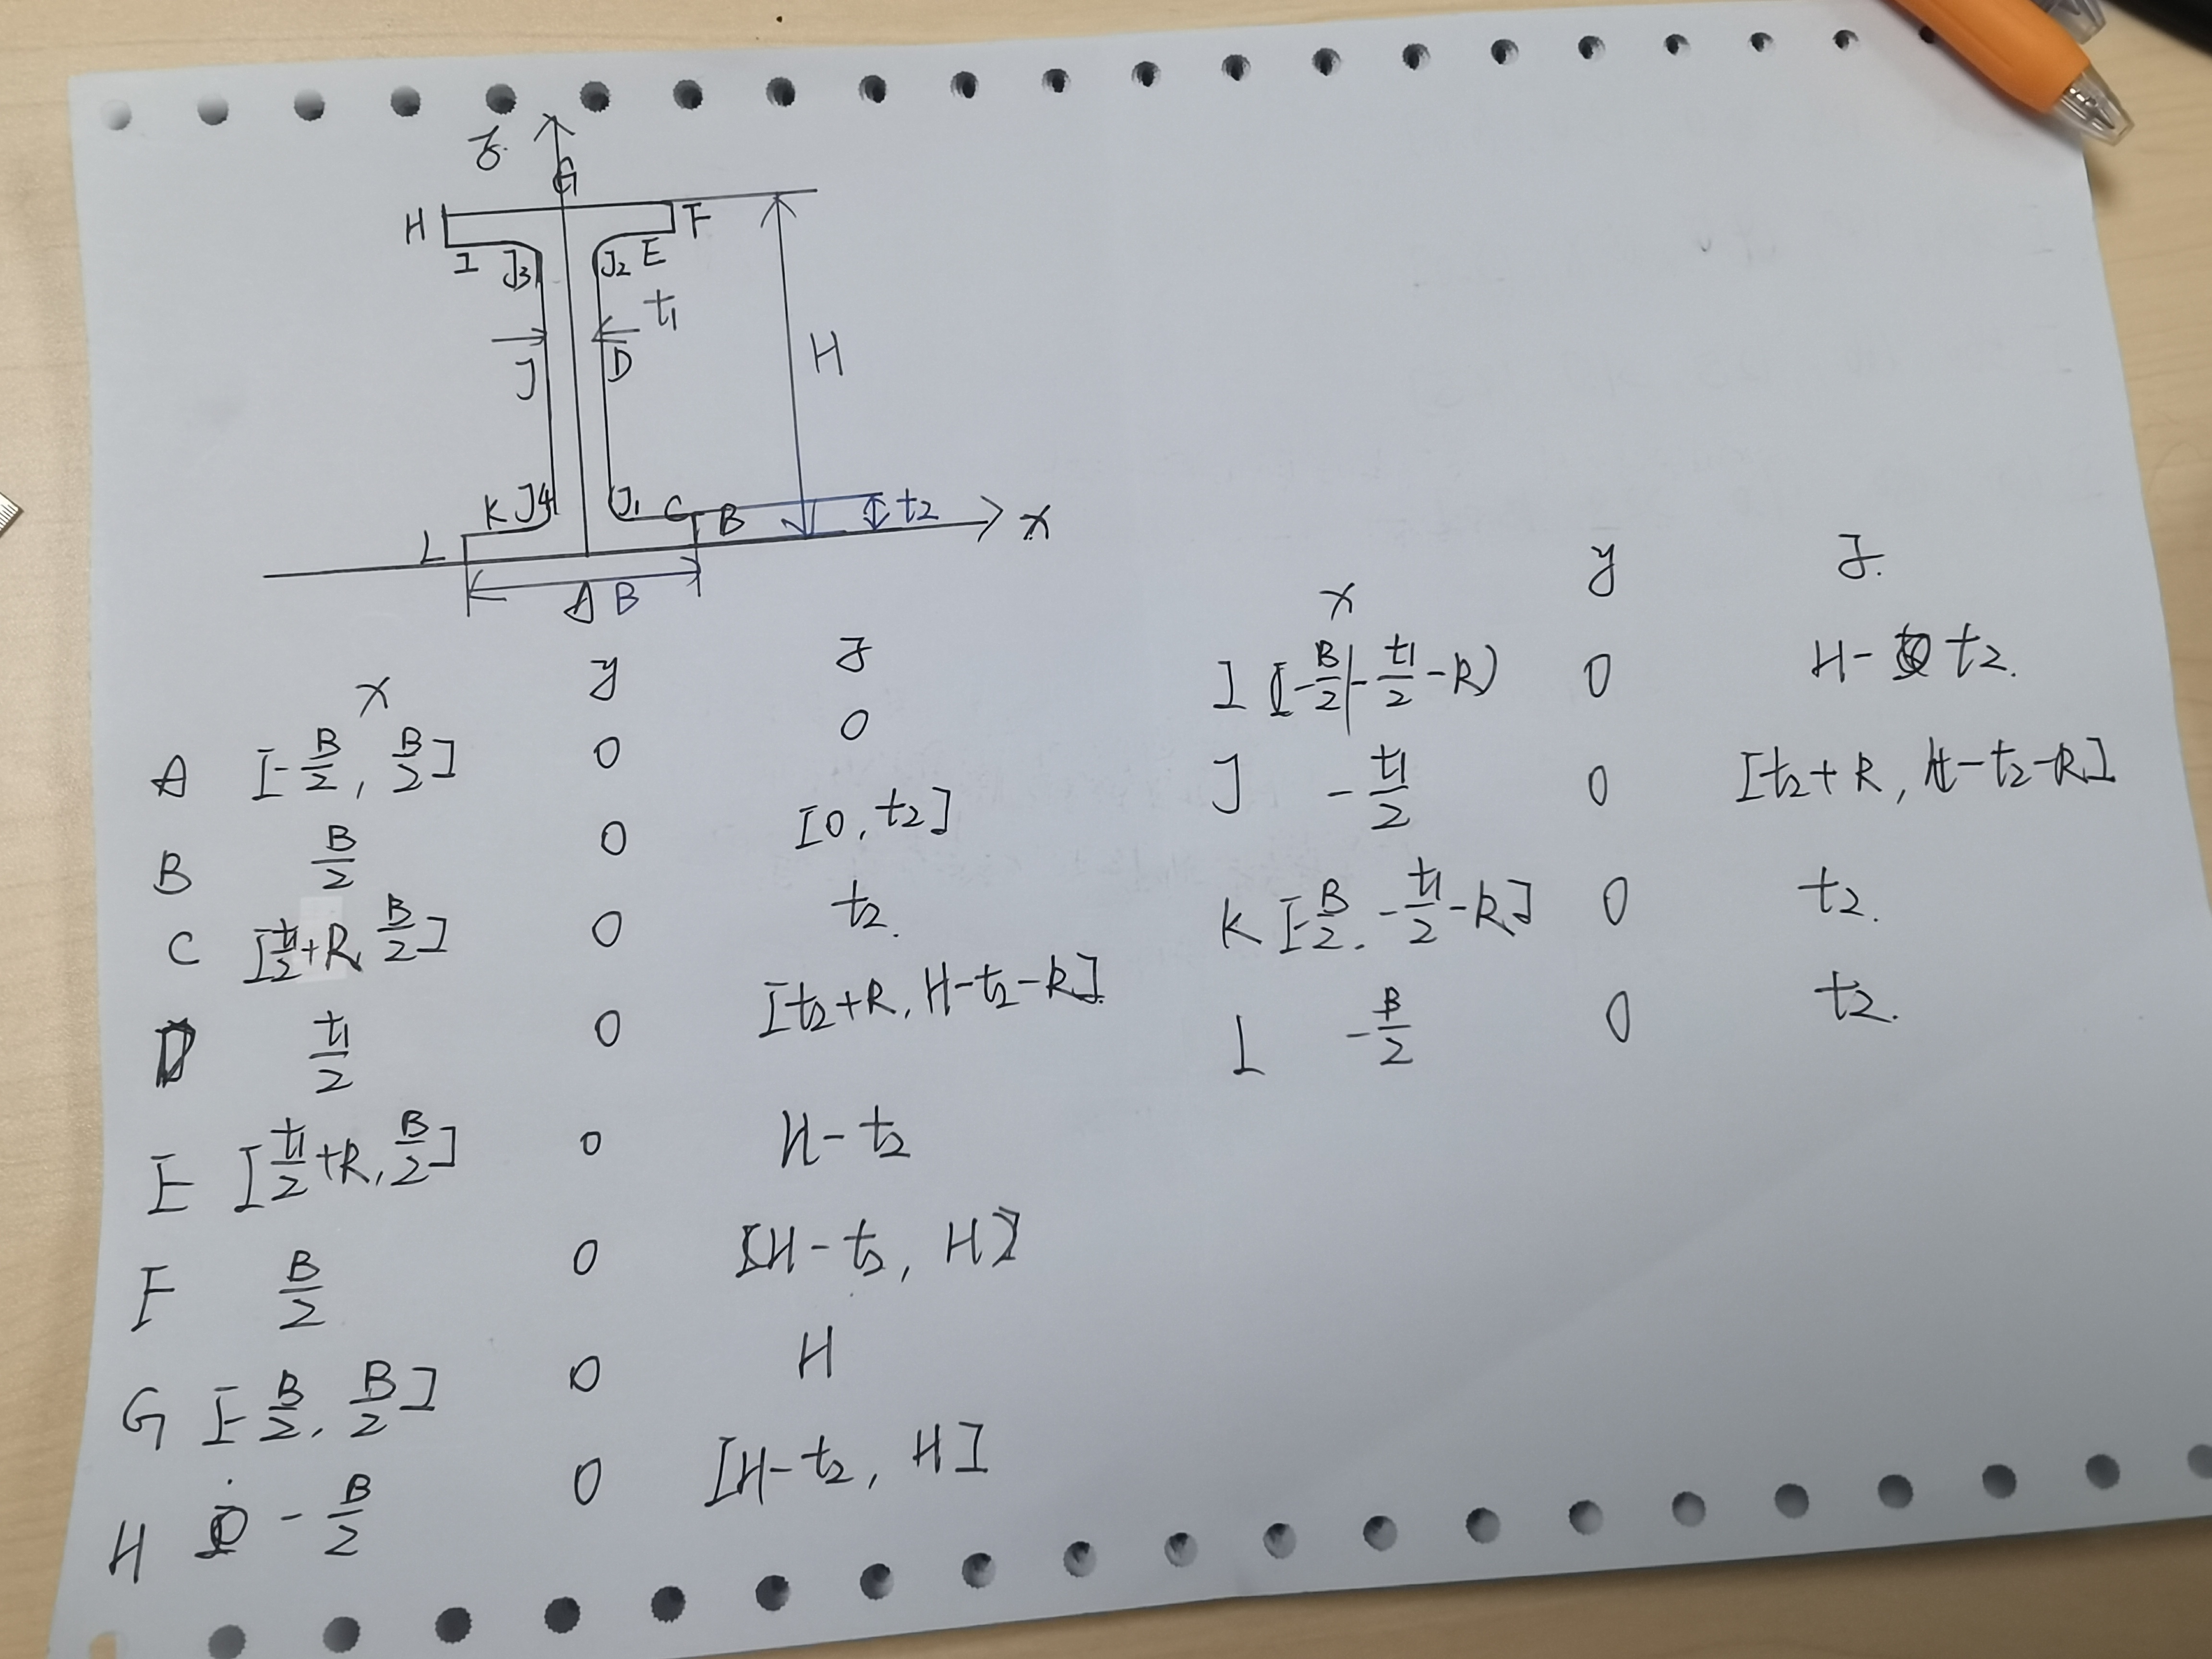 z
G
H F
I J3 J2 E
t1
H
J D
K J4 J1 C B t2
L x
A B
x y z
A [-B/2, B/2] 0 0
B B/2 0 [0, t2]
C [t1/2+R, B/2] 0 t2.
D t1/2 0 [t2+R, H-t2-R]
E [t1/2+R, B/2] 0 H-t2
F B/2 0 [H-t2, H]
G [-B/2, B/2] 0 H
H -B/2 0 [H-t2, H]
x y z.
I [-B/2, -t1/2-R) 0 H-t2.
J -t1/2 0 [t2+R, H-t2-R]
K [-B/2, -t1/2-R] 0 t2.
L -B/2 0 t2.